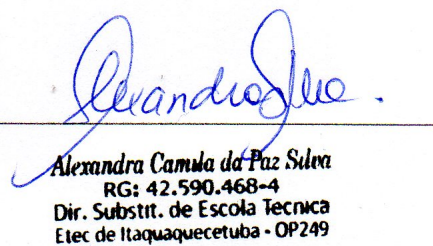 Alexandra Silva.
Alexandra Camila da Paz Silva
RG: 42.590.468-4
Dir. Substit. de Escola Tecnica
Etec de Itaquaquecetuba - OP249